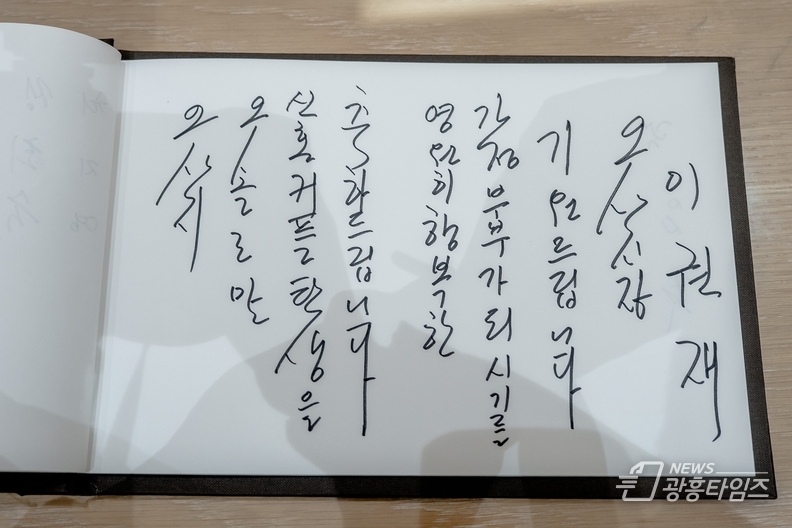 오산시
신혼커플탄생을
축하드립니다
영원히행복한
가정부부가되시기를
기원드립니다
오산시장
이권재
NEWS
광흥타임즈